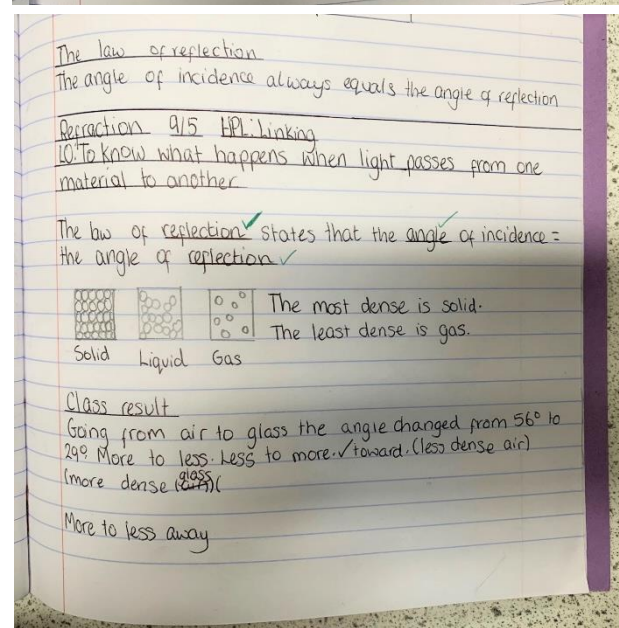 The law of reflection
The angle of incidence always equals the angle of reflection
Refraction 9/5 HPL: Linking
LO: To know what happens when light passes from one
material to another
The law of reflection ✓ states that the angle ✓ of incidence =
the angle of reflection ✓
The most dense is solid.
The least dense is gas.
Solid Liquid Gas
Class result
Going from air to glass the angle changed from 56° to
29°. More to less. Less to more. ✓ toward. (less dense air)
(more dense (glass)(
More to less away